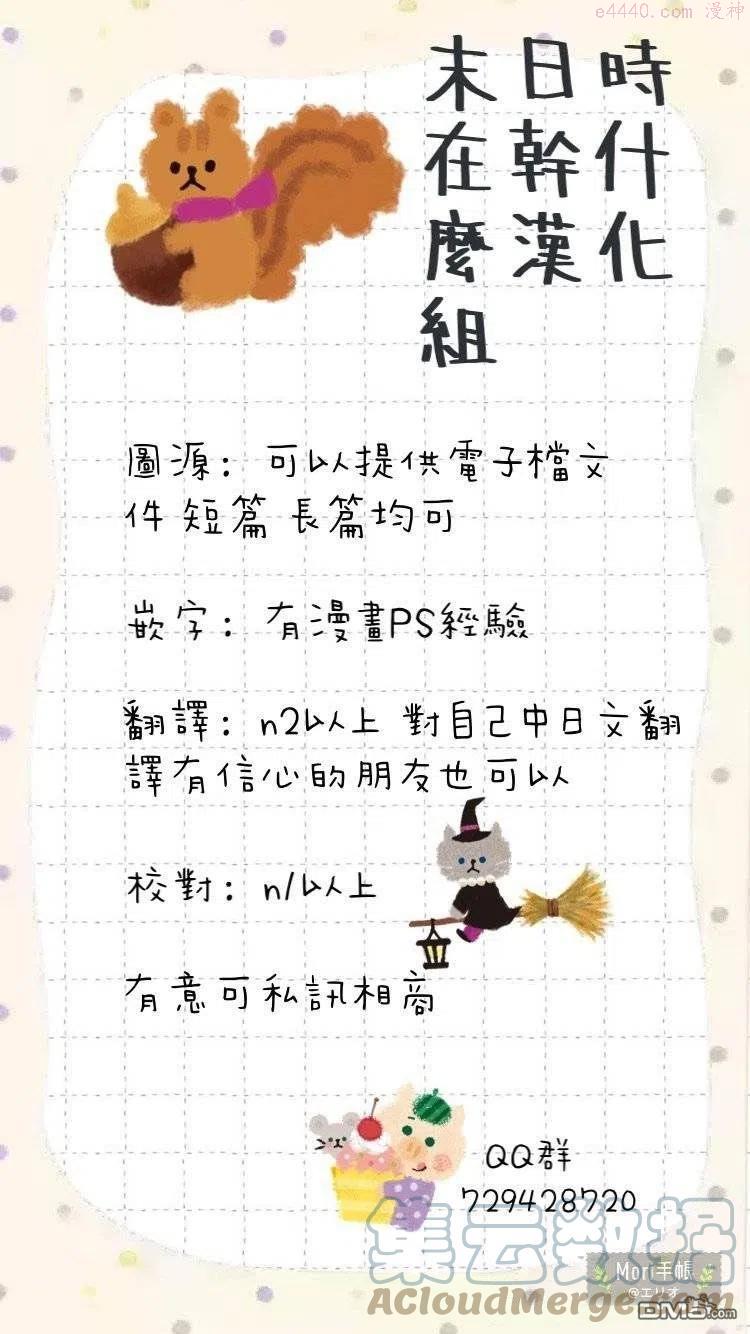 e4440.com 漫神
末日時
在幹什
麼漢化
組
圖源：可以提供電子檔文
件 短篇 長篇均可
嵌字：有漫畫PS經驗
翻譯：n2以上 對自己中日文翻
譯有信心的朋友也可以
校對：n1以上
有意可私訊相商
QQ群
729428720
集云数据
Mori手帳
@エリオ
ACloudMerge.com